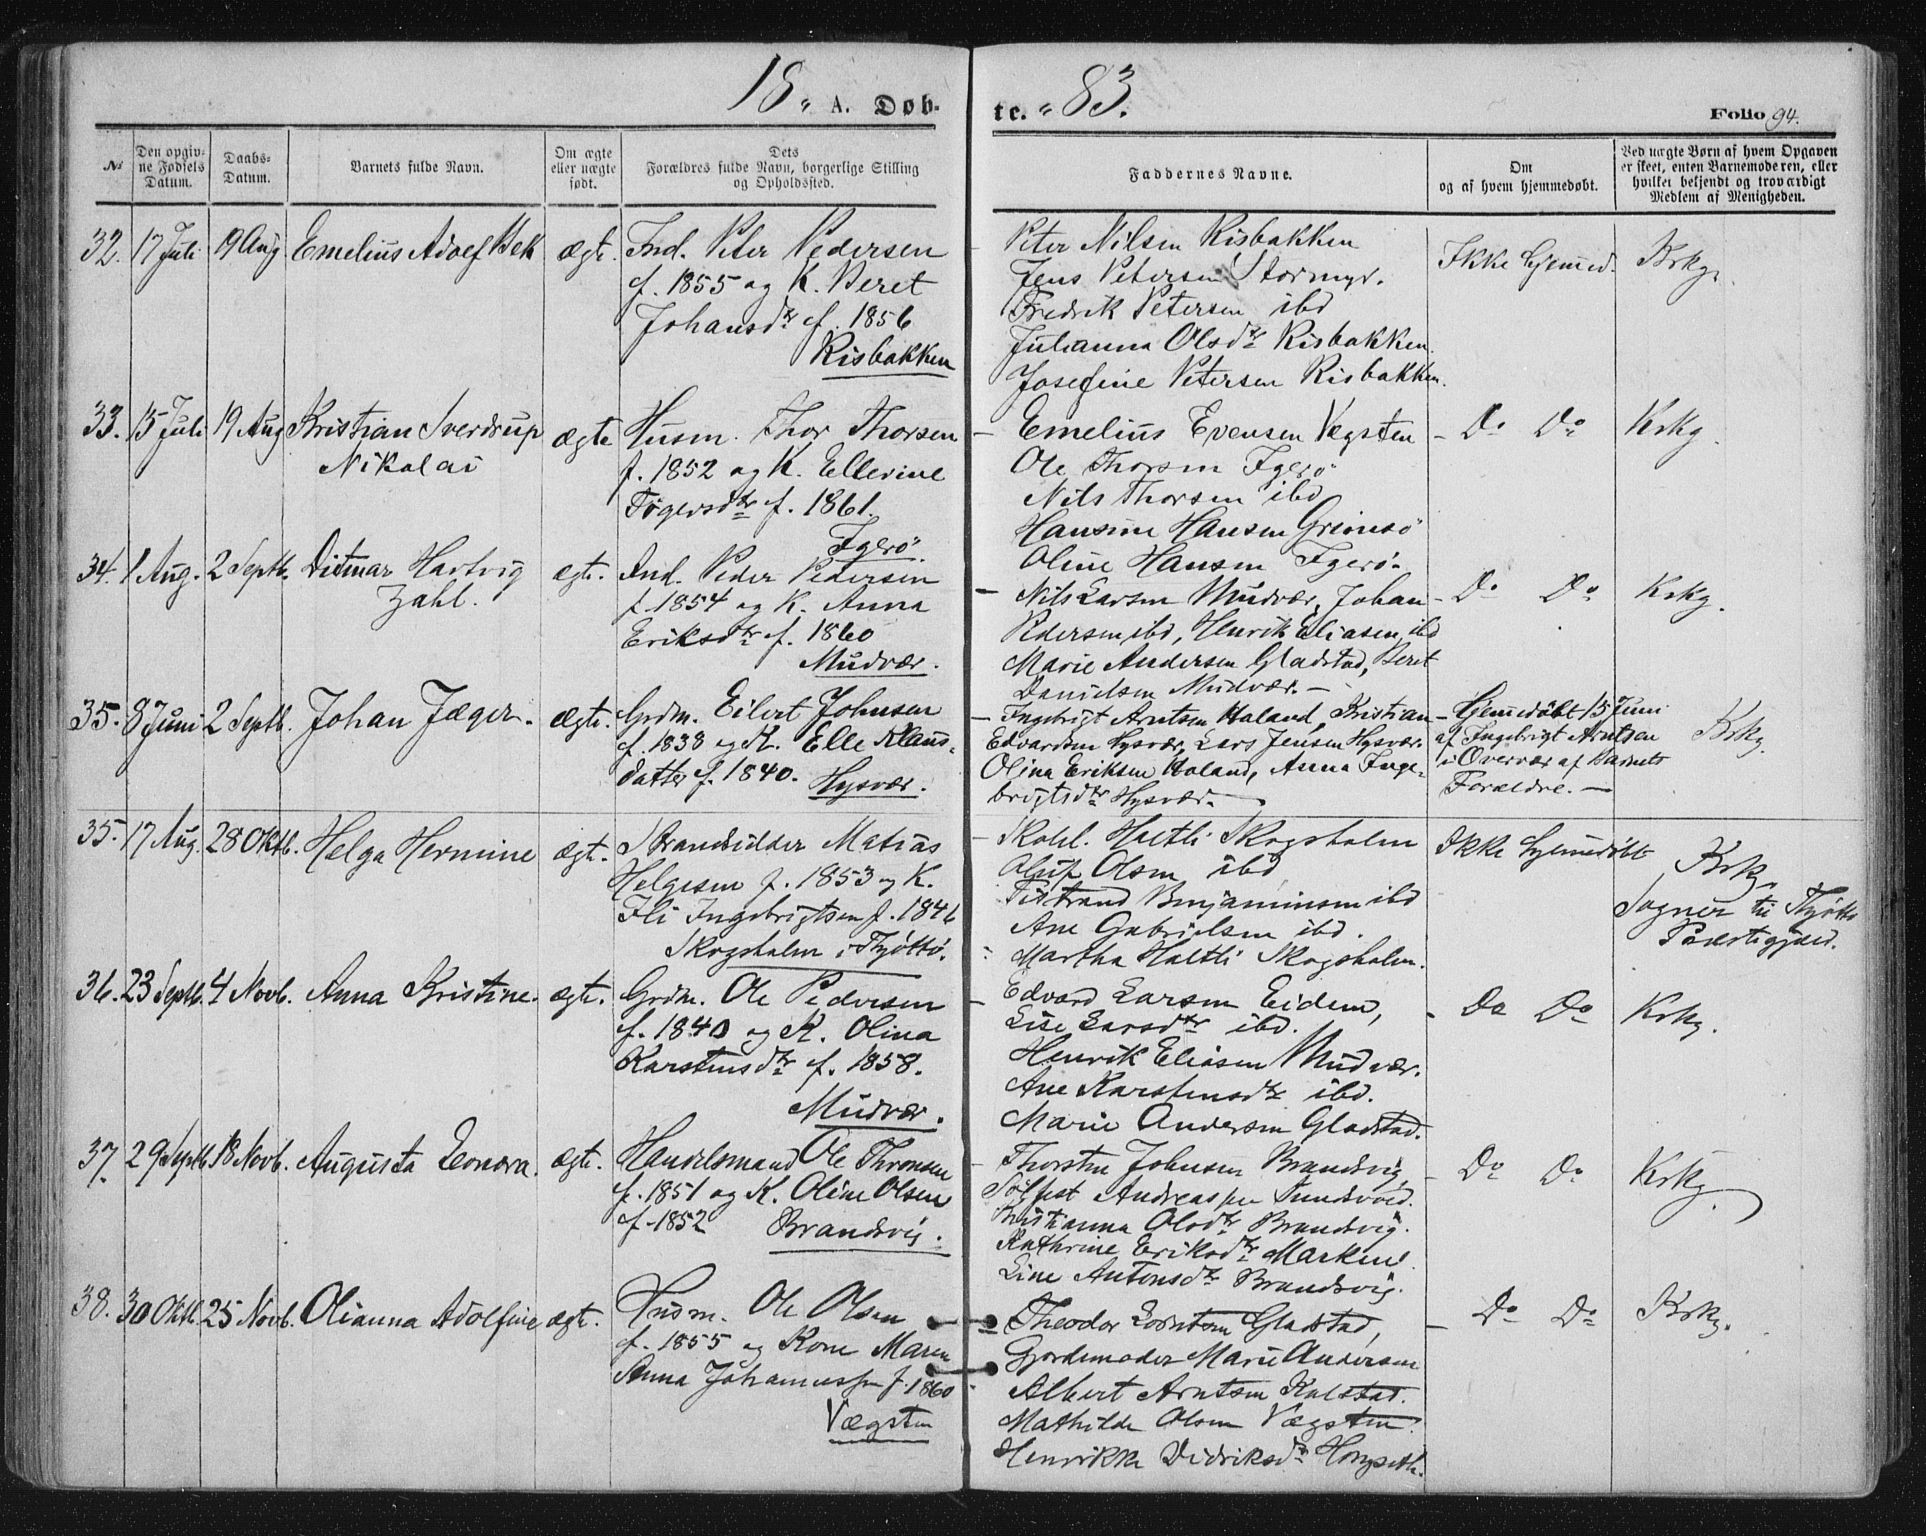 18 „ A. Døb-
te. „ 83.
Folio 94.
№
Den opgiv-
ne Fødsels
Datum.
Daabs-
Datum.
Barnets fulde Navn.
Om ægte
eller uægte
født.
Dets
Forældres fulde Navn, borgerlige Stilling
og Opholdssted.
Faddernes Navne.
Om
og af hvem hjemmedøbt.
Ved uægte Børn af hvem Opgaven
er skeet, enten Barnemoderen, eller
hvilket bekjendt og troværdigt
Medlem af Menigheden.
32. 17 Juli 19 Aug Emelius Adolf Bek ægte. Ind. Peter Pedersen
f. 1855 og K. Beret
Johansdtr f. 1856
Risbakken
Peter Nilsen Risbakken
Jens Petersen Stormyr.
Fredrik Petersen ibd
Julianna Olsdtr Risbakken.
Josefine Petersen Risbakken.
Ikke hjemmed.
Krkg.
33. 15 Juli 19 Aug Kristian Sverdrup
Nikolai
ægte Husm. Thor Thorsen
f. 1852 og K. Ellerine
f. 1861.
Igerø.
Emelius Evensen Vegsten
Ole Thorsen Igerø
Nils Thorsen ibd
Hansine Hansen Grimsø
Oline Hansen Igerø.
Do Do
Krkg.
34. 1 Aug. 2 Septb. Ditmar Hartvig
Zahl.
ægte. Ind. Peder Pedersen
f. 1854 og K. Anna
Eriksdtr f. 1860
Mudvær.
Nils Larsen Mudvær, Johan
Pedersen ibd, Henrik Eliasen ibd
Marie Andersen Gladstad, Beret
Danielsen Mudvær. —
Do Do
Krkg.
35. 8 Juni 2 Septb. Johan Jæger. ægte. Grdm. Eilert Johnsen
f. 1838 og K. Elle Klaus-
datter f. 1840. Hysvær.
Ingebrigt Arntsen Haland, Kristian
Edvardsen Hysvær, Lars Jensen Hysvær.
Olina Eriksen Haland, Anna Inge-
brigtsdtr Hysvær.
Hjemedøbt 15 Juni
af Ingebrigt Arntsen
i Overvær af Barnets
Forældre. —
Krkg.
35. 17 Aug. 28 Oktb. Helga Hermine ægte. Strandsidder Matias
Helgesen f. 1853 og K.
Ingebrigtsen f. 1846
Skogsholm i Tjøttø.
Haltli Skogsholm
Oluf Olsen ibd
Benjaminsen ibd
Ane Gabrielsen ibd.
Martha Haltli Skogsholm.
Ikke hjemedøbt
Krkg.
Sogner til Tjøttø
Præstegjæld.
36. 23 Septb. 4 Novb. Anna Kristine. ægte. Grdm. Ole Pedersen
f. 1840 og K. Olina
Karstensdtr f. 1858.
Mudvær.
Edvard Larsen Eidem,
Lise Larsdtr ibd.
Henrik Eliasen Mudvær.
Ane Karstensdtr ibd.
Marie Andersen Gladstad.
Do Do
Krkg.
37. 29 Septb 18 Novb. Augusta Leonora. ægte. Handelsmand Ole Thronsen
f. 1851 og K. Oline Olsen
f. 1852 Brandsvig.
Thorsten Johnsen Brandsvig,
Sølfest Andreassen Sundsvold.
Kristianna Olsdtr Brandsvig.
Kathrine Eriksdtr Marken.
Line Antonsdtr Brandsvig.
Do Do
Krkg.
38. 30 Oktb. 25 Novb. Olianna Adolfine ægte. Husm. Ole Olsen
f. 1855 og Kone Maren
Anna Johannessen f. 1860
Vægsten
Theodor Lorntsen Gladstad,
Gjordemoder Marie Andersen
Albert Arntsen Kalstad.
Mathilde Olsen Vægsten.
Henrikke Didriksdtr
Do Do
Krkg.